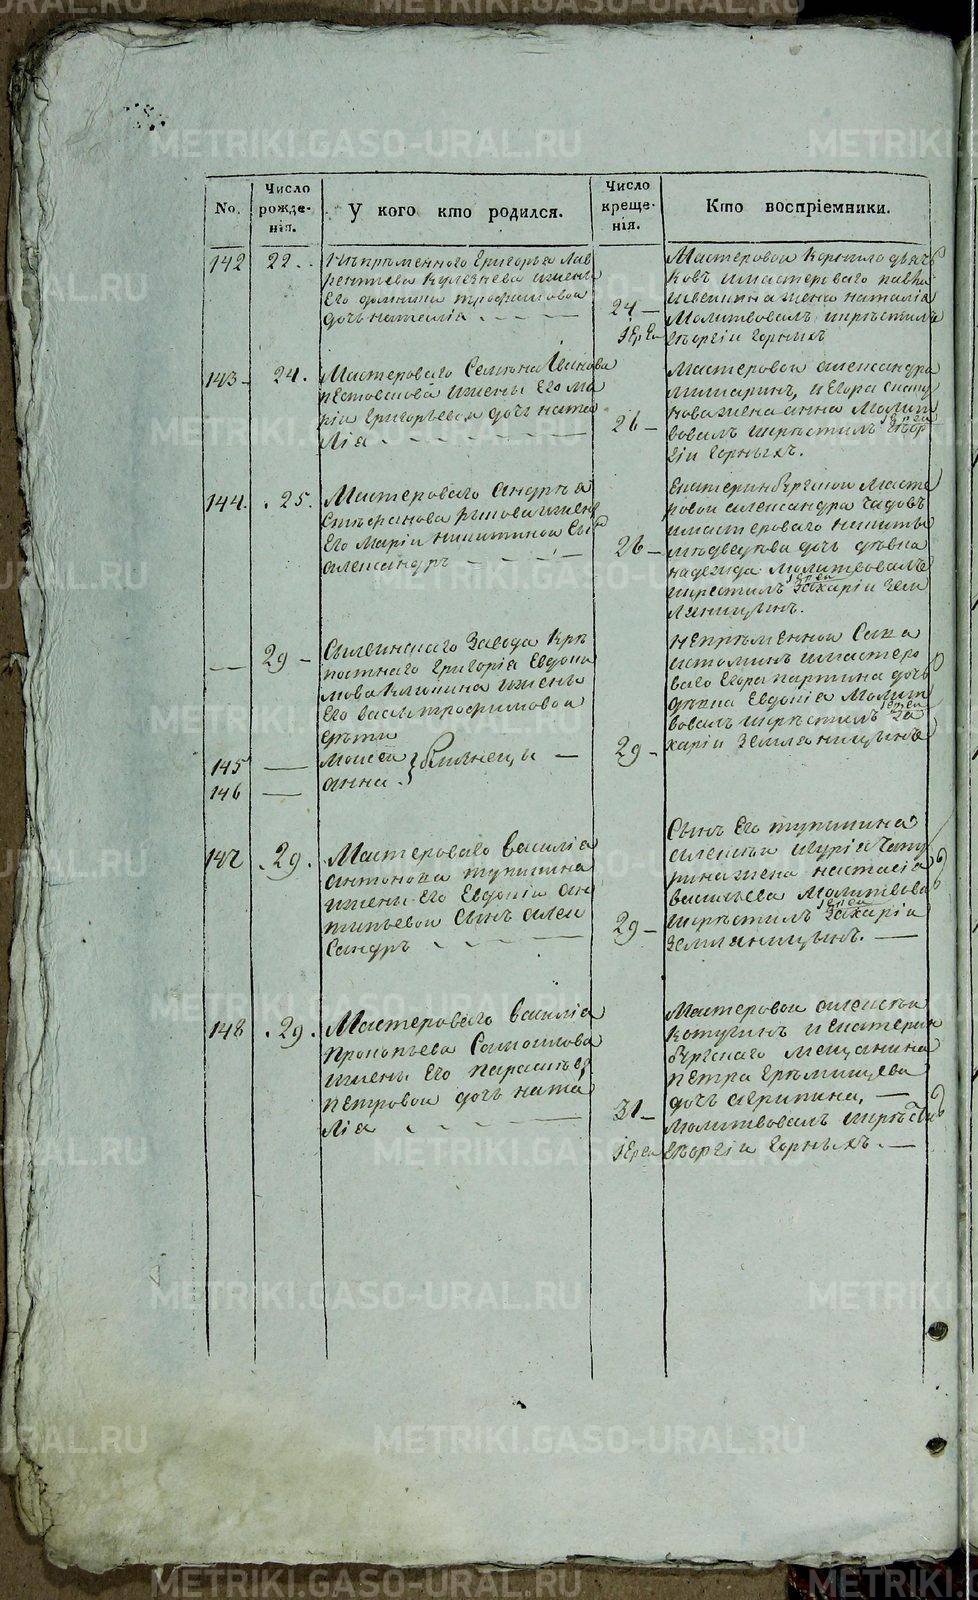 METRIKI.GASO-URAL.RU
No.
Число рожде-нія.
У кого кто родился.
Число креще-нія.
Кто воспріемники.
142
22.
Григорья Лав
рентьева
Его трофимовой
дочь наталія
24
Іерей
Мастеровой Корнило дьяч
ковъ имастероваго павла
жена наталія
Молитвовалъ икрѣстилъ
Георгіи Горныхъ
143
24.
Мастероваго Семиона Иванова
ижены Его ма
ріи Григорьевой дочь ната
лія
26
Мастеровой александра
иЕгора
жена анна Молит
вовалъ икрѣстилъ іерей Геор
гіи Горныхъ.
144.
25.
Мастероваго андрѣя
Стѣфанова ижены
Его Маріи никитиной Сынъ
александръ
26
Екатеринбургской масте
ровой александра Чадовъ
имастероваго никиты
мѣдведкова дочь дѣвка
надежда Молитвовалъ
икрестилъ іерей Захаріи Зем
ляницынъ.
29
Завода Крѣ
постнаго Григорія Евдоки
мова ижены
Его васы трофимовой
дѣти
145
моисей
146
анна
близнецы
29
Непрѣменной Сава
истоминъ имастеро
ваго Егора партина дочь
дѣвка Евдокія Молит
вовалъ икрѣстилъ іерей За
харіи Земляницынъ
147
29.
Мастероваго василія
антонова тупицина
ижены Его Евдокіи ан
типьевой Сынъ алек
сандръ
29
Сынъ Его тупицина
алексѣй
жена настасія
васильева Молитвова
икрѣстилъ іерей Захаріи
Земляницынъ.
148
29.
Мастероваго василія
прокопьева Самойлова
ижены Его парасковьи
петровой дочь ната
лія
31
Іерей
Мастеровой алексѣй
Котугинъ иекатерин
бургскаго мещанина
петра Ерѣмищева
дочь агрипина,
Молитвовалъ икрѣстилъ
Георгіи Горныхъ.